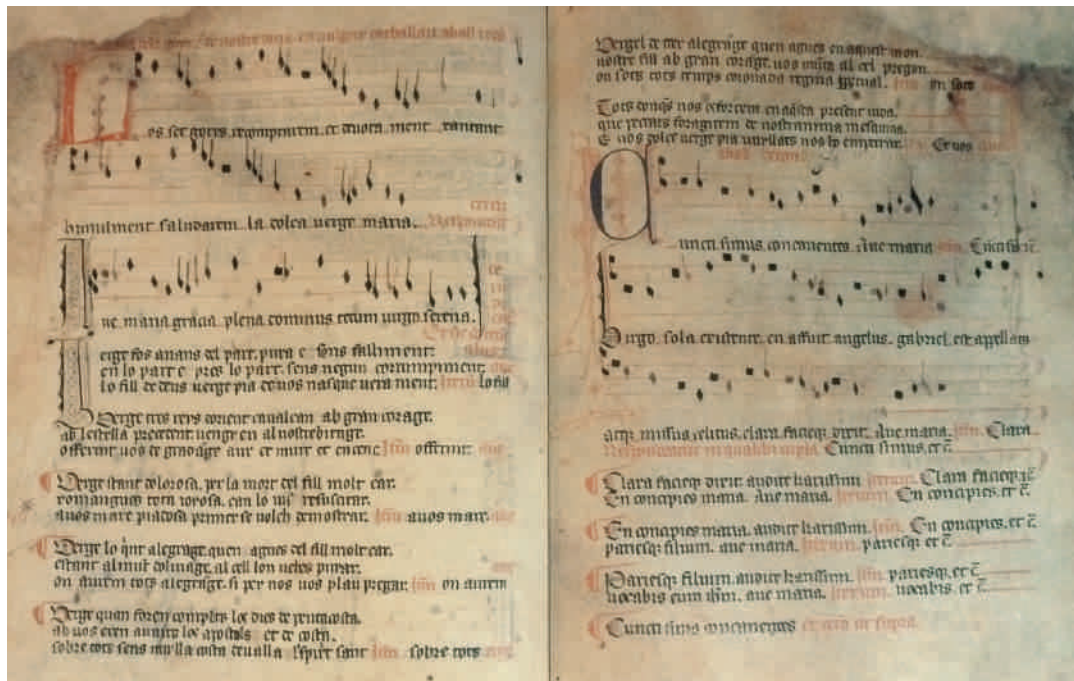 los set gotxs recomptarem et deuota ment xantant
humilment saludarem la dolça uerge maria.
Aue maria gracia plena dominus tecum uirgo serena.
Verge fos anans del part. pura e sens falliment.
en lo part e pres lo part. sens negun corrumpiment.
lo fill de deus uerge pia de uos nasque uera ment. Iterum lo fill
Verge tres reys dorient caualcan ab gran corage.
ab lestella precedent uengren al uostrebitage.
offerint uos de gradatge aur et mirre et encenc Itm offerint
Verge stant dolorosa. per la mort del fill molt car.
romangues tota ioyosa. can lo uis resuscitar.
auos mare piadosa primer se volch demostrar. Itm auos mare
Verge lo qint alegrage. quen agues del fill molt car.
estant al munt doliuatge. al cell lon ueles puyar.
on aurem tots alegrage. si per nos uos plau pregar. Itm on aurem
Verge quan foren complitz los dies de pentacosta.
ab uos eren aunits los apostols et de costa.
sobre tots sens nuylla costa deualla lspirit sant Itm sobre tots
Vergel de rer alegrage quen agues en aquest mon.
uostre fill ab gran corage. uos munta al cel pregon.
on sots tots temps coronada regina perpetual. Itm on sots
Tots donqs nos esforcem en aqsta present uida.
que peccats foragitem de nostranima mesquina.
E uos dolce uerge pia uuyllats nos lo empetrar. Et uos
Cuncti simus concanentes. Aue maria Itm. Cuncti simus
Virgo sola existente. en affuit angelus. gabriel est appellatus
atqz missus celitus. clara facieqz dixit. Aue maria. Itm. Clara
Cuncti simus. et c.
Clara facieqz dixit. audite karissimi Iterum. Clara facieqz
En concipies maria. Aue maria. Iterum. En concipies. et c.
En concipies maria. audite karissimi. Itm. En concipies. et c.
pariesqz filium. aue maria. Iterum. pariesqz et c.
Pariesqz filium. audite karissimi. Itm. pariesqz. et c.
uocabis eum ihm. aue maria. Iterum. uocabis. et c.
Cuncti simus concanentes et cetera ut supra.